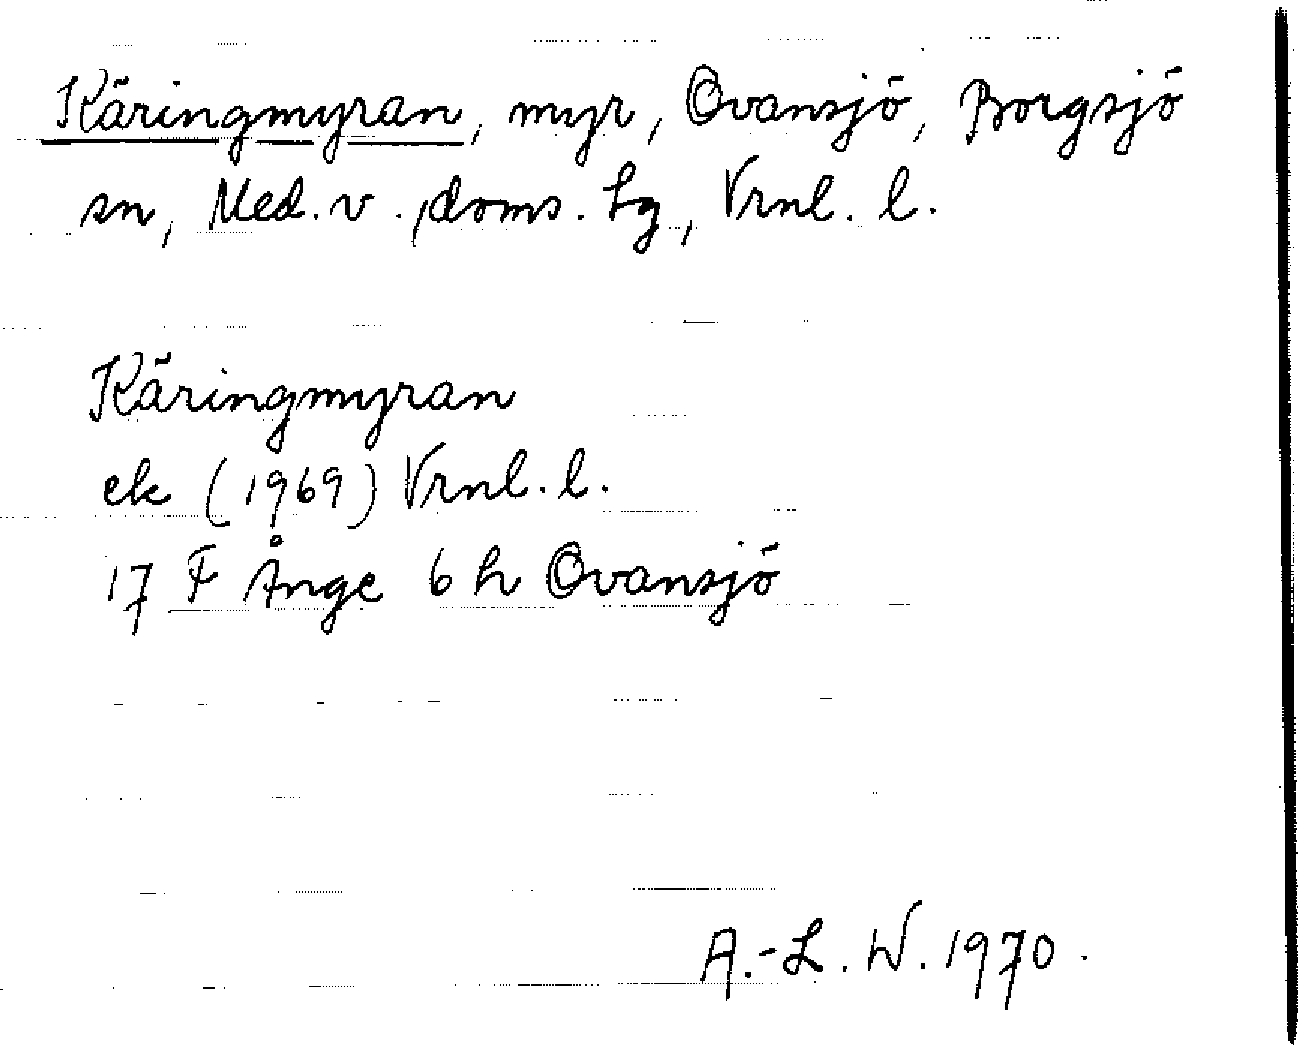 Käringmyran, myr, Ovansjö, Borgsjö
sn, Med. v., doms. hg, Vrnl. l.
Käringmyran
ek (1969) Vrnl. l.
17 F Ånge 6 h Ovansjö
A.-L. W. 1970.